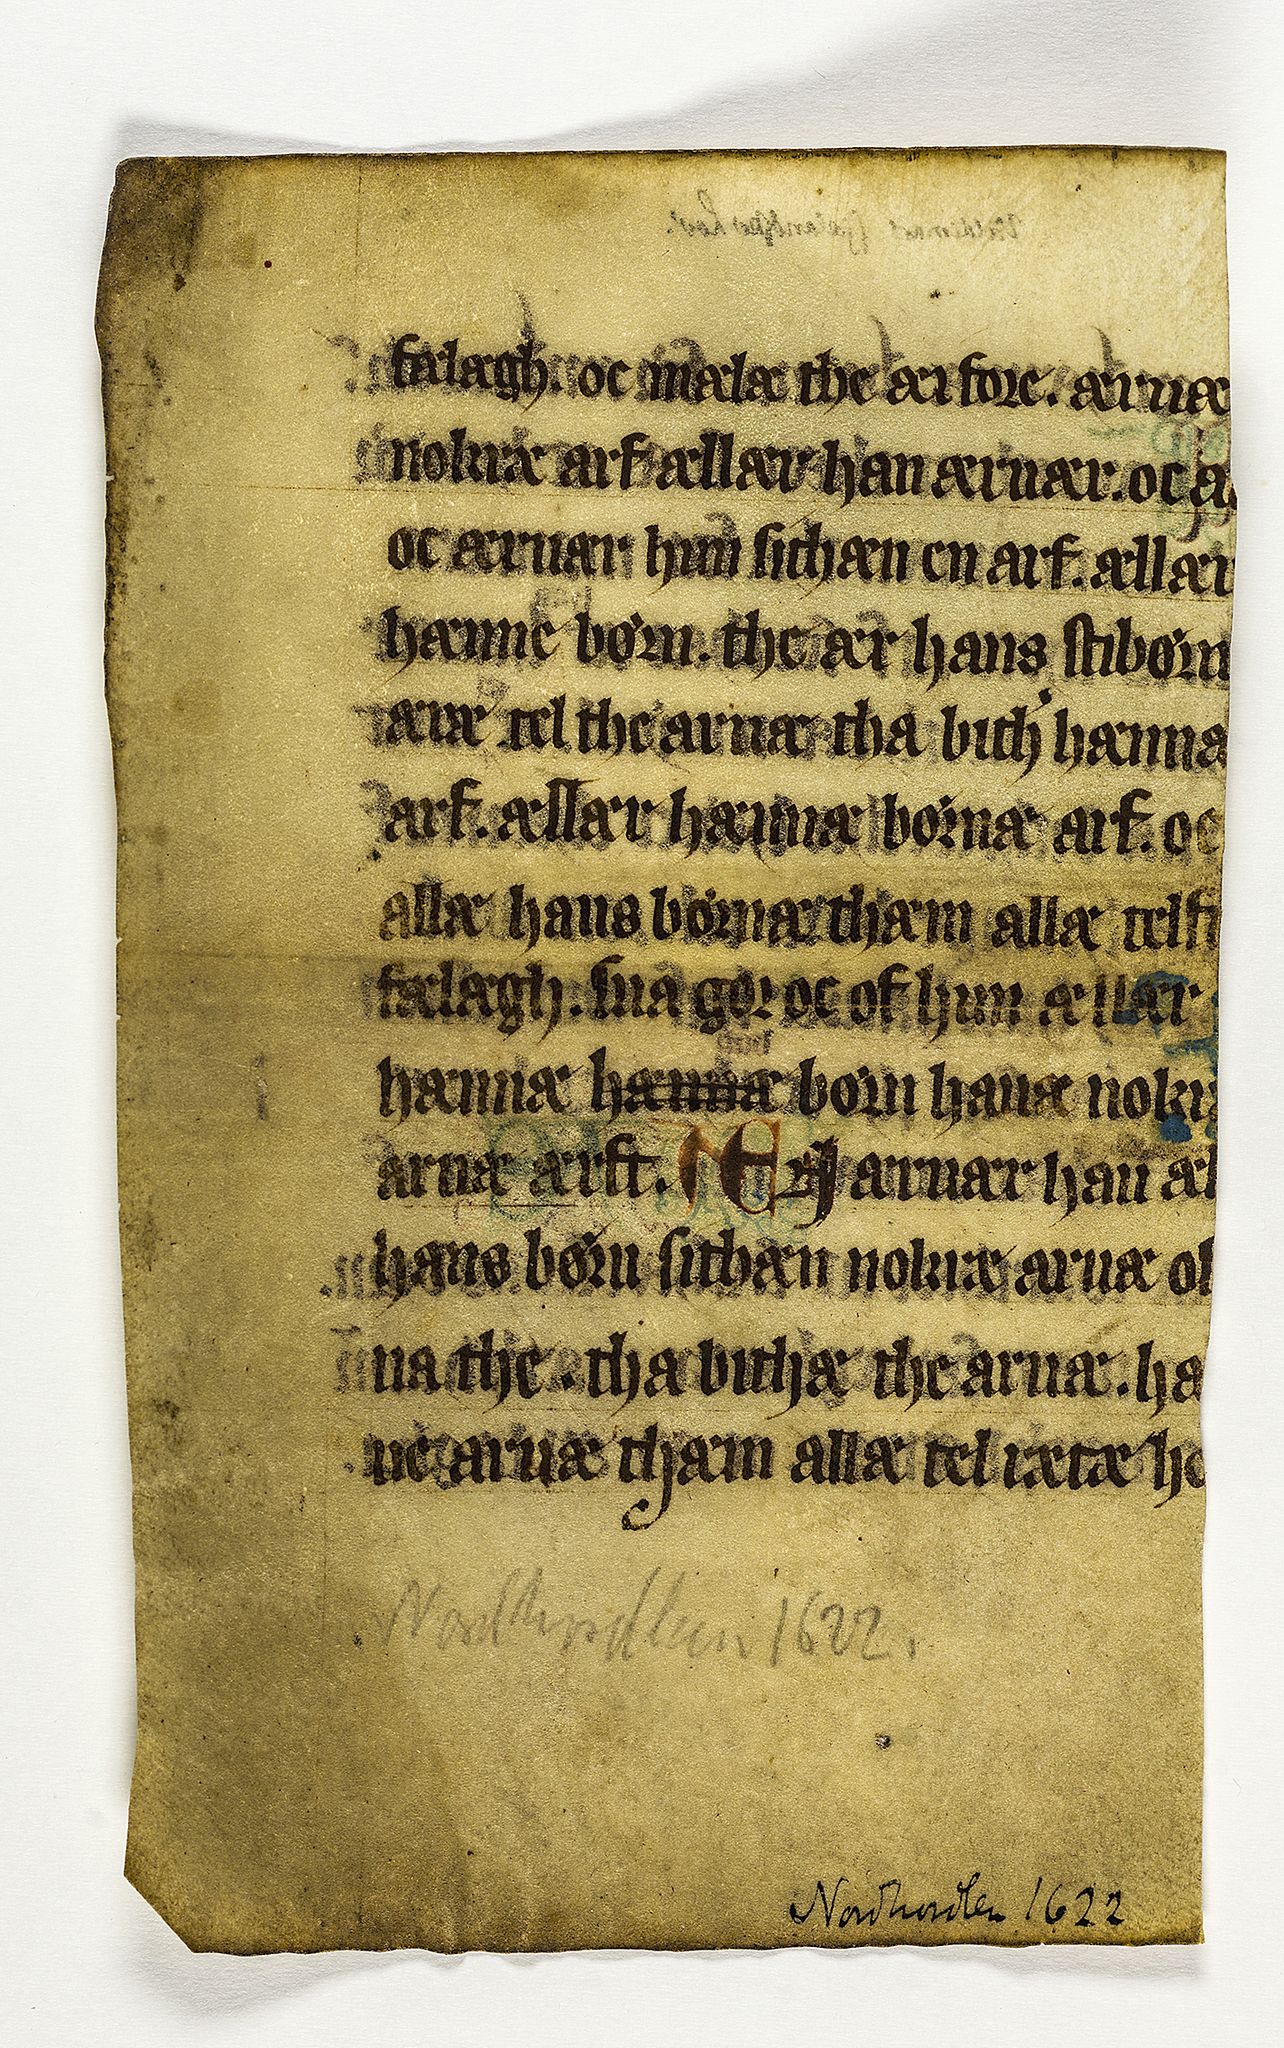 Valdemars sjælandske Lov.
fælægh. oc mælæ the ær fore. æruæ
nokræ arf ællær han æruær. oc æ
oc æruær hun sithæn en arf. ællær
hænne børn. the ær hans stibørn
æræ tel the aruæ tha vith' hænnæ
arf. ællær hænnæ bornæ arf. oc
allæ hans bornæ thæm allæ telfi
fælægh. sua gør oc of hun ællær
hænnæ hænnæ børn hauæ nokræ
aruæ ærft. EN aruær han æl
hans børn sithæn nokræ aruæ of
ua the. tha vithæ the aruæ. ha
ue aruæ thæm allæ tel iætæ ho
Nordhordlen 1622.
Nordhordlen 1622